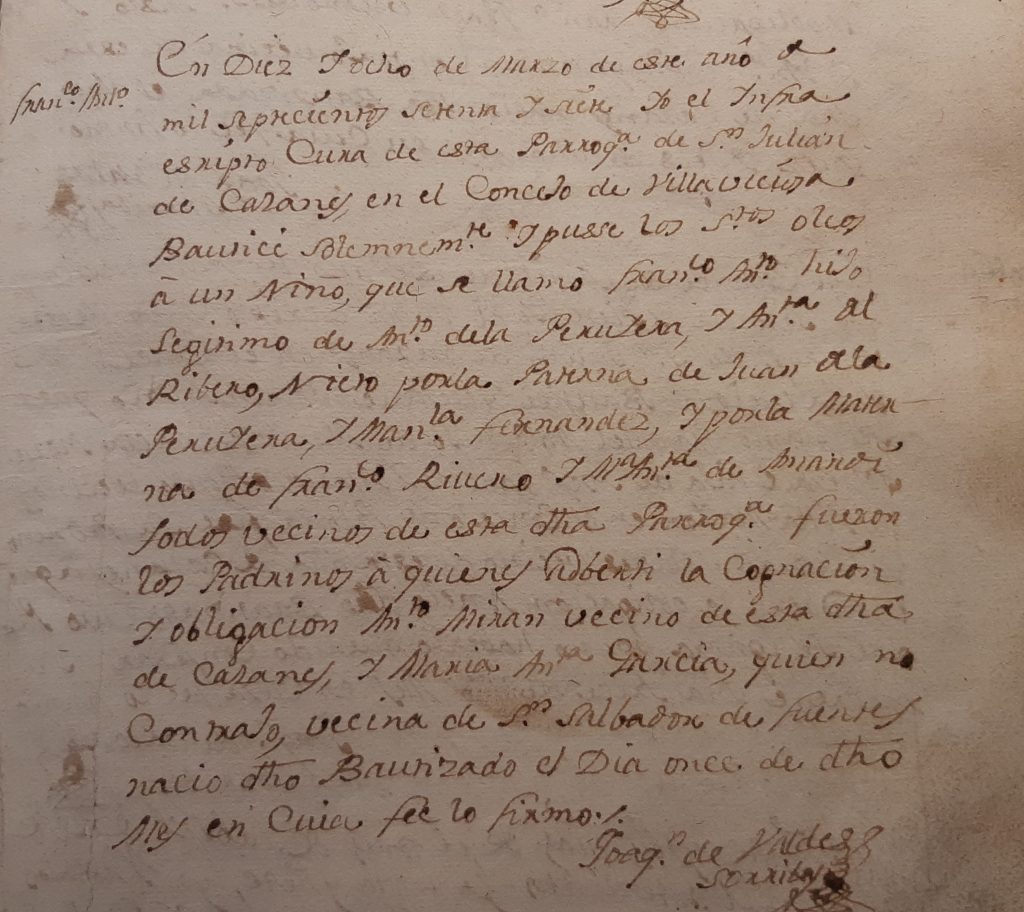 Fran.co Ant.o
En Diez Y ocho de Marzo de este año de
mil septecientos setenta Y siete Yo el Infra
escripto Cura de esta Parroq.a de S.n Julian
de Cazanes, en el Concejo de Villaviciosa
Bauticé solemnem.te Y pusse los S.tos oleos
à un Niño, que se llamo Fran.co Ant.o hijo
Legitimo de Ant.o dela Peruyera, Y Ant.a del
Ribero, Nieto porla Paterna de Juan dela
Peruyera, Y Man.la Fernandez, Y porla Mater
na de Fran.co Rivero Y M.a Ant.a de Amandi
todos vecinos de esta dha Parroq.a fueron
los Padrinos à quienes Adberti la Cognación
Y obligacion Ant.o Miran vecino de esta dha
de Cazanes, Y Maria Ant.a Garcia, quien no
Contrajo, vecina de S.n Salbador de fuentes
nacio dho Bautizado el Dia once de dho
Mes en Cuia fee lo firmo.
Joaq.n de Valdes
Sorribas